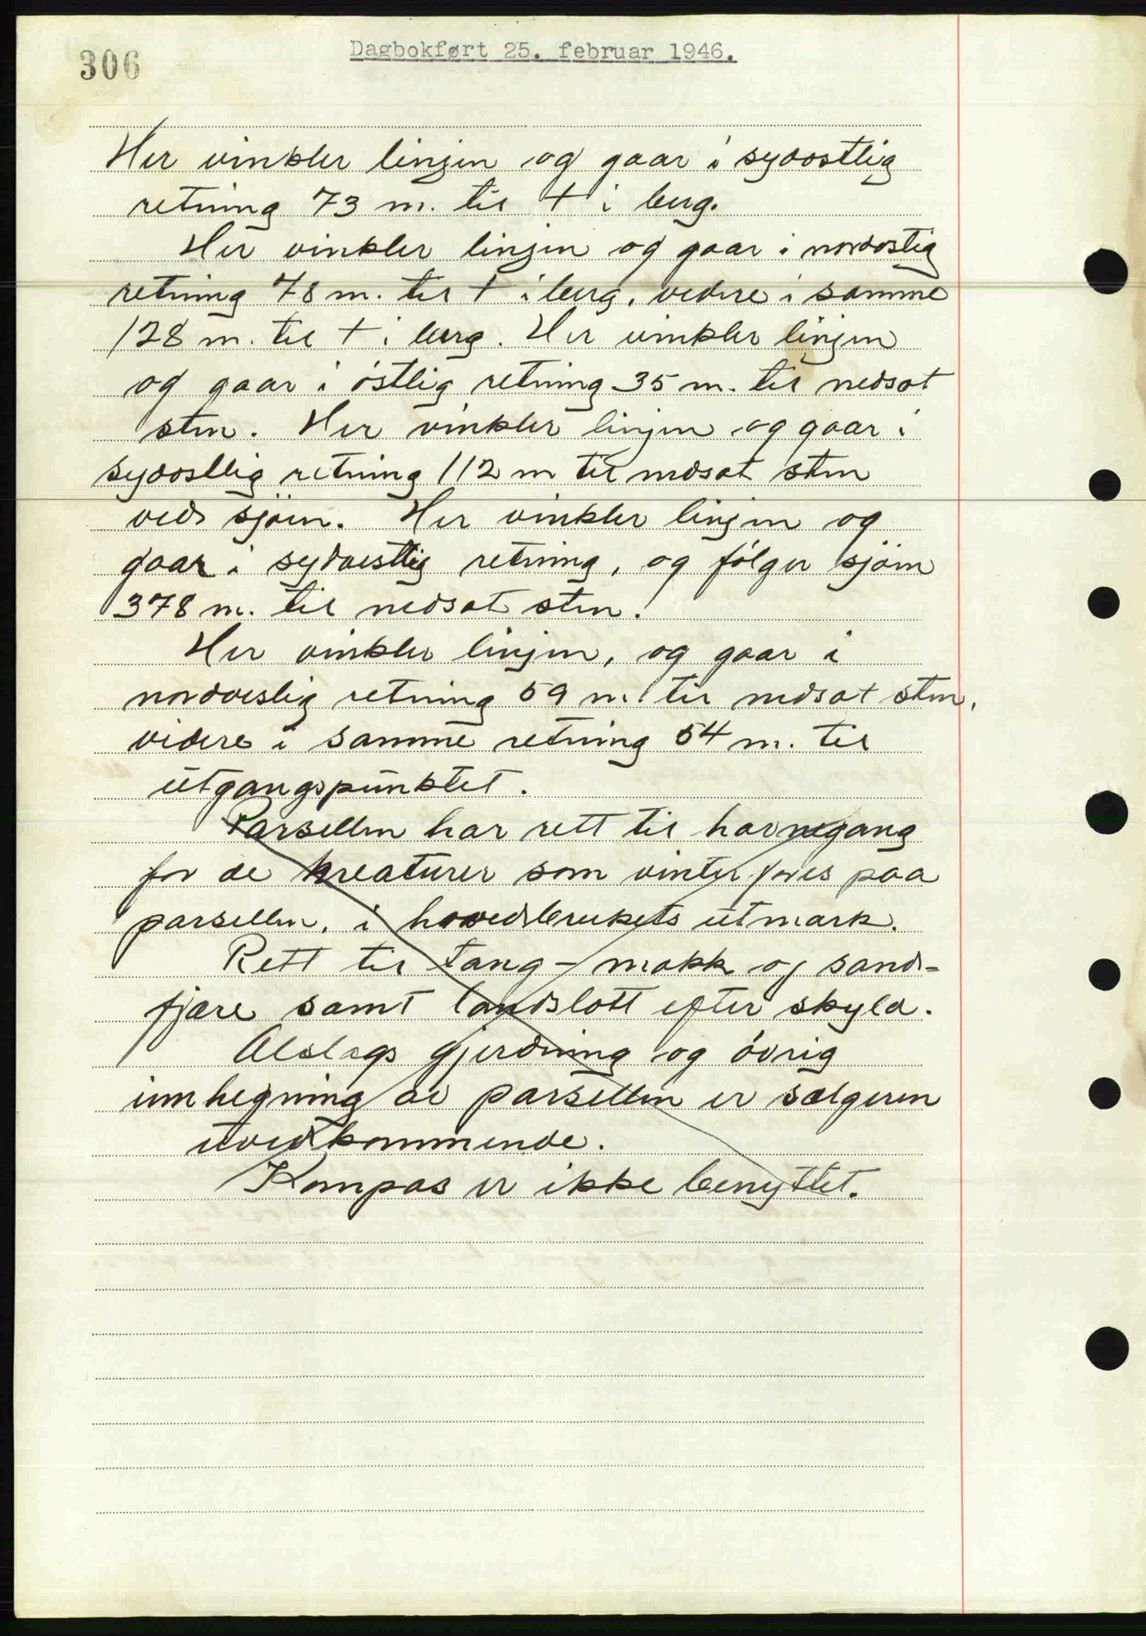 306
Dagbokført 25. februar 1946.
Her vinkler linjen og gaar i sydostlig
retning 73 m. til + i berg.
Her vinkler linjen og gaar i nordostlig
retning 78 m. til + i berg, videre i samme
128 m. til + i berg. Her vinkler linjen
og gaar i östlig retning 35 m. til nedsat
sten. Her vinkler linjen og gaar i
sydostlig retning 112 m til nedsat sten
ved sjöen. Her vinkler linjen og
gaar i sydvestlig retning, og fölger sjöen
378 m. til nedsat sten.
Her vinkler linjen, og gaar i
nordveslig retning 59 m. til nedsat sten,
videre i samme retning 54 m. til
utgangspunktet.
Parsellen har rett til havnegang
for de kreaturer som vinterföres paa
parsellen, i hovedsbrukets utmark.
Rett til tang- makk og sand-
fjære samt landslott efter skyld.
Alslags gjerdning og övrig
innhegning av parsellen er sælgeren
uvedkommende.
Kompas er ikke benyttet.